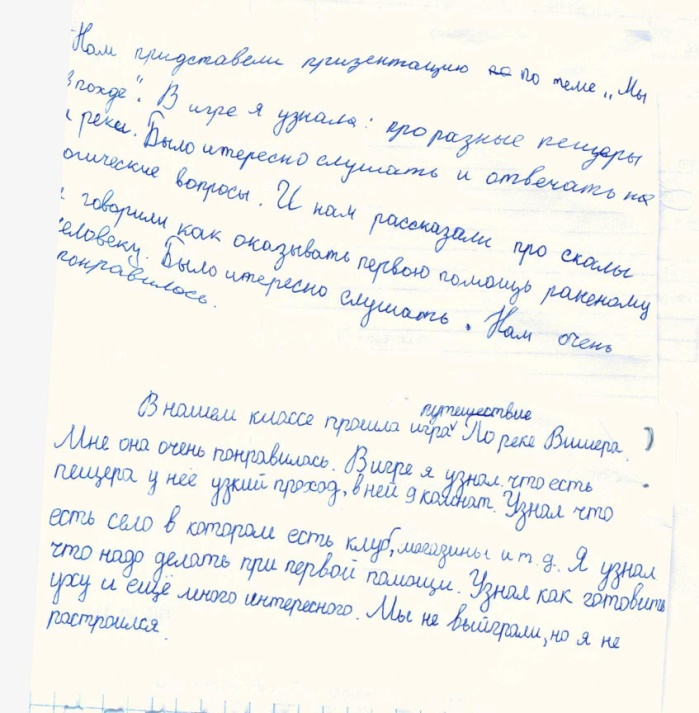 Нам придставели призентацию по теме „Мы
в походе". В игре я узнала: про разные пещеры
и реки. Было итересно слушать и отвечать на
логические вопросы. И нам рассказали про скалы
и говорили как оказывать первою помощь раненому
человеку. Было итересно слушать. Нам очень
понравилось.
путешествие
В нашем классе прошла игра По реке Вишера.
Мне она очень понравилась. В игре я узнал что есть
пещера у неё узкий проход, в ней 9 комнат. Узнал что
есть село в котором есть клуб, магазины и т.д. Я узнал
что надо делать при первой помощи. Узнал как готовить
уху и ещё много интересного. Мы не выйграли, но я не
растроился.